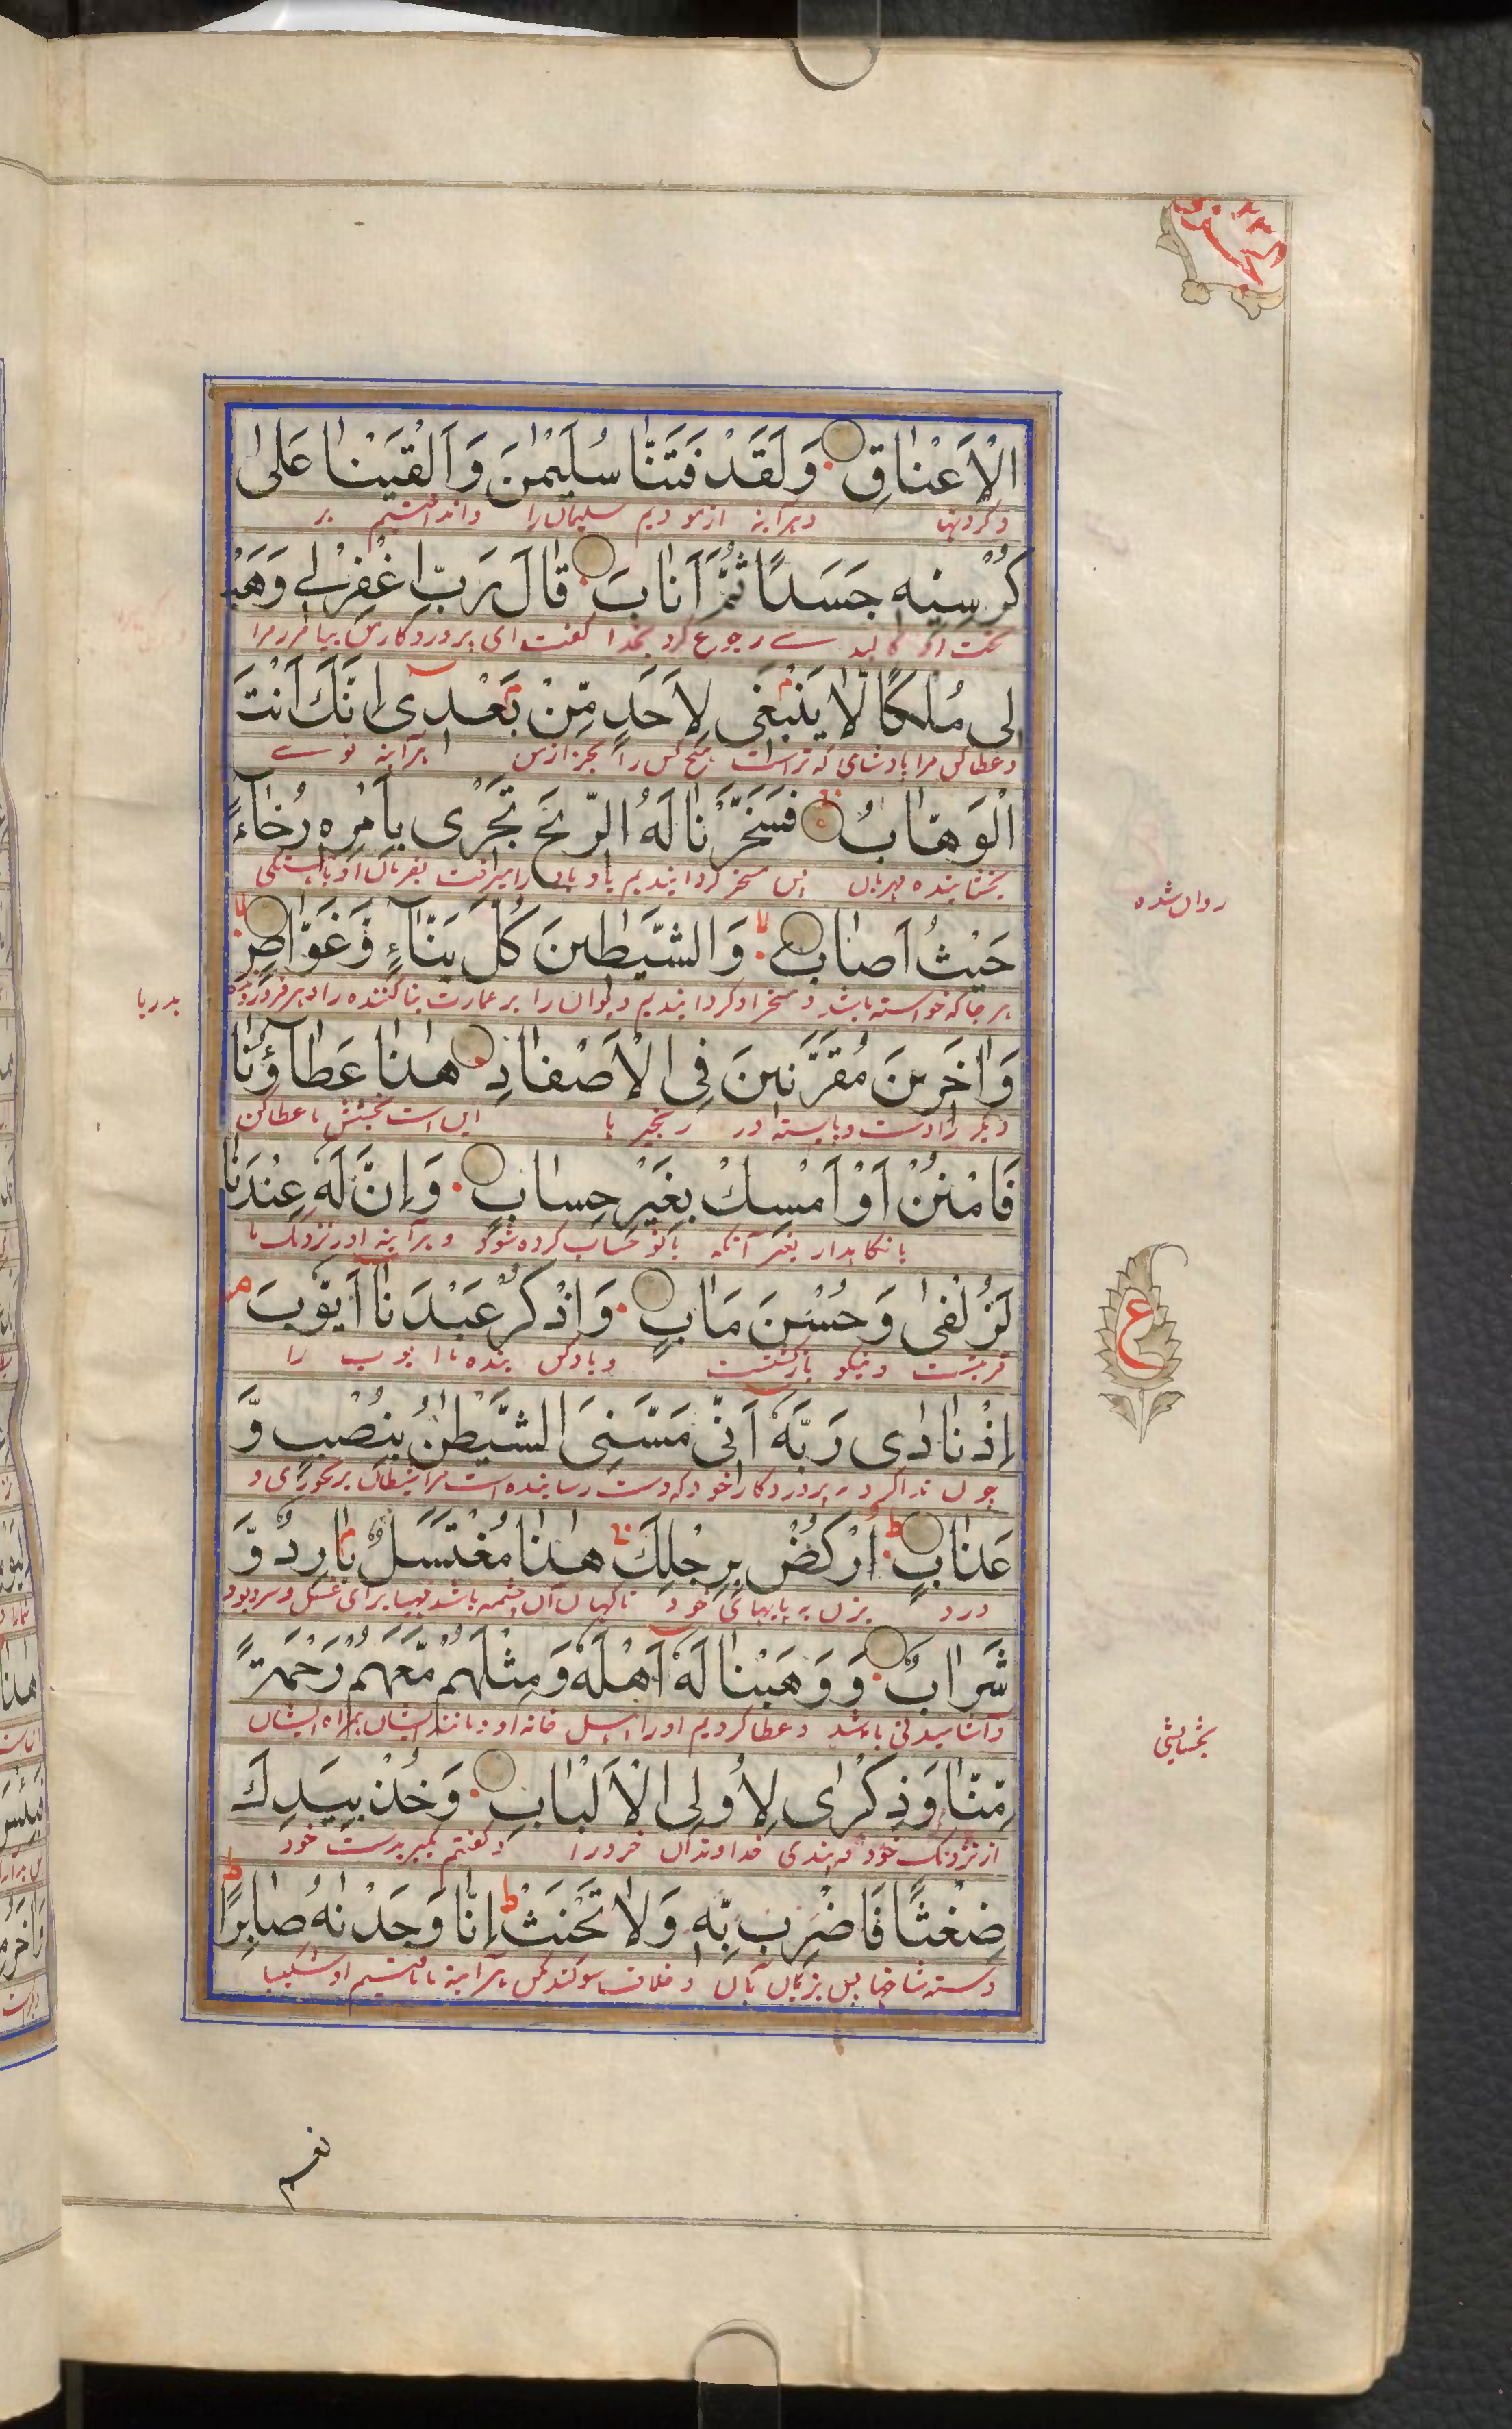 الْاَعْنَاقِ وَلَقَدْ فَتَنَّا سُلَيْمٰنَ وَاَلْقَيْنَا عَلٰى
و گردنها و هر آینه ازمودیم سلیمان را و انداختیم بر
كُرْسِيِّهٖ جَسَدًا ثُمَّ اَنَابَ قَالَ رَبِّ اغْفِرْ لِي وَهَبْ
تخت او کالبدے رجوع کرد بخدا گفت ای پروردگار من بیامرز مرا
لِي مُلْكًا لَّا يَنْبَغِي لِاَحَدٍ مِّنْ بَعْدِيٓ اِنَّكَ اَنْتَ
و عطا کن مرا بادشاهی که نراست هیچ کس را بجز از من هر آینه توے
الْوَهَّابُ فَسَخَّرْنَا لَهُ الرِّيْحَ تَجْرِي بِاَمْرِهٖ رُخَآءً
بخشاینده مهربان پس مسخر گردانیدیم باو باد را میرفت بفرمان او باهستگی
حَيْثُ اَصَابَ وَالشَّيٰطِيْنَ كُلَّ بَنَّآءٍ وَّغَوَّاصٍ
هر جا که خواسته باشد و مسخر او گردانیدیم دیوان را هر عمارت بنا کننده را و هر فرو رونده
روان شده
بدریا
وَاٰخَرِيْنَ مُقَرَّنِيْنَ فِي الْاَصْفَادِ هٰذَا عَطَآؤُنَا
دیگر را دست و پا بسته در زنجیر ها این است بخشش ما عطا کن
فَامْنُنْ اَوْ اَمْسِكْ بِغَيْرِ حِسَابٍ وَاِنَّ لَهٗ عِنْدَنَا
یا نگاهدار بغیر آنکه باتو حساب کرده شود و هر آینه او را نزدیک ما
لَزُلْفٰى وَحُسْنَ مَاٰبٍ وَاذْكُرْ عَبْدَنَآ اَيُّوْبَ
قربتست و نیکو بازگشتست و یاد کن بنده ما ایوب را
ع
اِذْ نَادٰى رَبَّهٗٓ اَنِّي مَسَّنِيَ الشَّيْطٰنُ بِنُصْبٍ وَّ
چون ندا کرد پروردگار خود که دست رسانیده است مرا شیطان برنجوری و
عَذَابٍ اُرْكُضْ بِرِجْلِكَ هٰذَا مُغْتَسَلٌ بَارِدٌ وَّ
درد بزن به پایهای خود ناگهان آن چشمه باشد مهیا برای غسل و سرد بود
شَرَابٌ وَوَهَبْنَا لَهٗٓ اَهْلَهٗ وَمِثْلَهُمْ مَّعَهُمْ رَحْمَةً
و آشامیدنی باشد و عطا کردیم او را اهل خانه او و مانند ایشان همراه ایشان
بخشایشی
مِّنَّا وَذِكْرٰى لِاُولِي الْاَلْبَابِ وَخُذْ بِيَدِكَ
از نزدیک خود و پندی خداوندان خرد را و گفتم بگیر بدست خود
ضِغْثًا فَاضْرِبْ بِّهٖ وَلَا تَحْنَثْ اِنَّا وَجَدْنٰهُ صَابِرًا
دسته شاخها پس بزن بآن و خلاف سوگند مکن هر آینه ما یافتیم او شکیبا
نعم